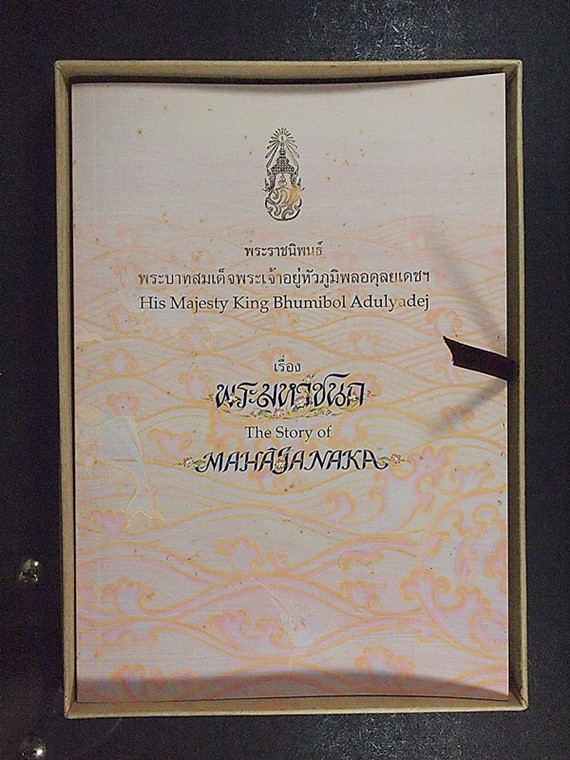 พระราชนิพนธ์
พระบาทสมเด็จพระเจ้าอยู่หัวภูมิพลอดุลยเดชฯ
His Majesty King Bhumibol Adulyadej
เรื่อง
พระมหาชนก
The Story of
MAHAJANAKA